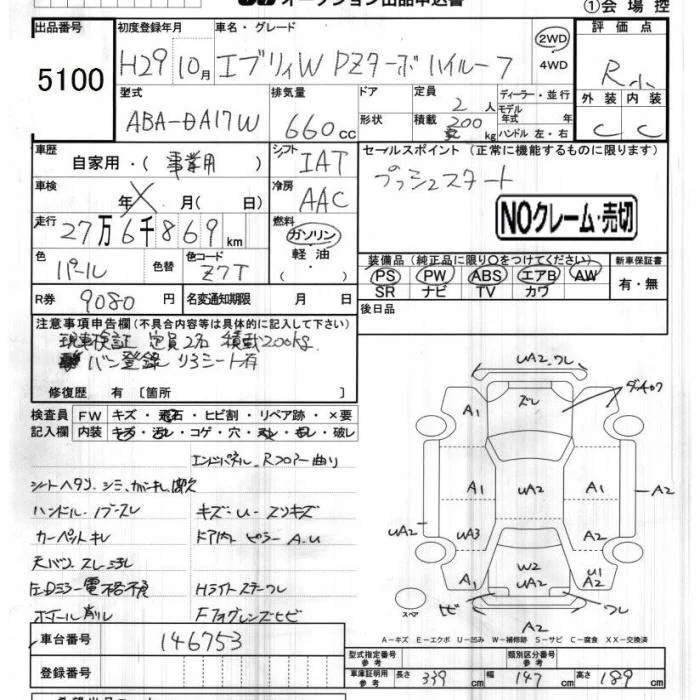 オークション出品申込書 ①会場控
出品番号 5100
初度登録年月 H29 10月
車名・グレード エブリィW PZターボハイルーフ
2WD
4WD
評価点 R
外装 内装
C C
型式 ABA-DA17W
排気量 660cc
ドア
形状
定員 2人
積載 200 kg
ディーラー・並行
モデル年式 年
ハンドル 左・右
車歴 自家用・(事業用)
シフト IAT
車検 年X月(日)
冷房 AAC
走行 27万6千869km
燃料 ガソリン
軽油
( )
色 パール 色替
色コード Z7T
R券 9080円
名変通知期限 月 日
セールスポイント(正常に機能するものに限ります)
プッシュスタート
NOクレーム・売切
装備品(純正品に限り○をつけてください) 新車保証書
PS PW ABS エアB AW
SR ナビ TV カワ
有・無
後日品
注意事項申告欄(不具合内容等は具体的に記入して下さい)
現車検証 定員2名 積載200kg
バン登録 リヤシート有
修復歴 有〔箇所
検査員 FW キズ・飛石・ヒビ割・リペア跡・×要
記入欄 内装 キズ・汚レ・コゲ・穴・スレ・モレ・破レ
エンドパネル、Rフロアー曲り
ハンドル・ノブスレ
カーペットキレ
ドア内 ピラー A.U
Hライトステーワレ
ホイール削レ
車台番号 146753
登録番号
UA2 ワレ
A1 ズレ
A1 UA2 A1
A2
UA2 UA3 A2
A1 W2 U1
UA2 A2
ヒビ ワレ
スペア A2
A-キズ E-エクボ U-凹み W-補修跡 S-サビ C-腐食 XX-交換済
型式指定番号 参考
類別区分番号 参考
車庫証明用 参考 長さ 339cm 幅 147cm 高さ 189cm